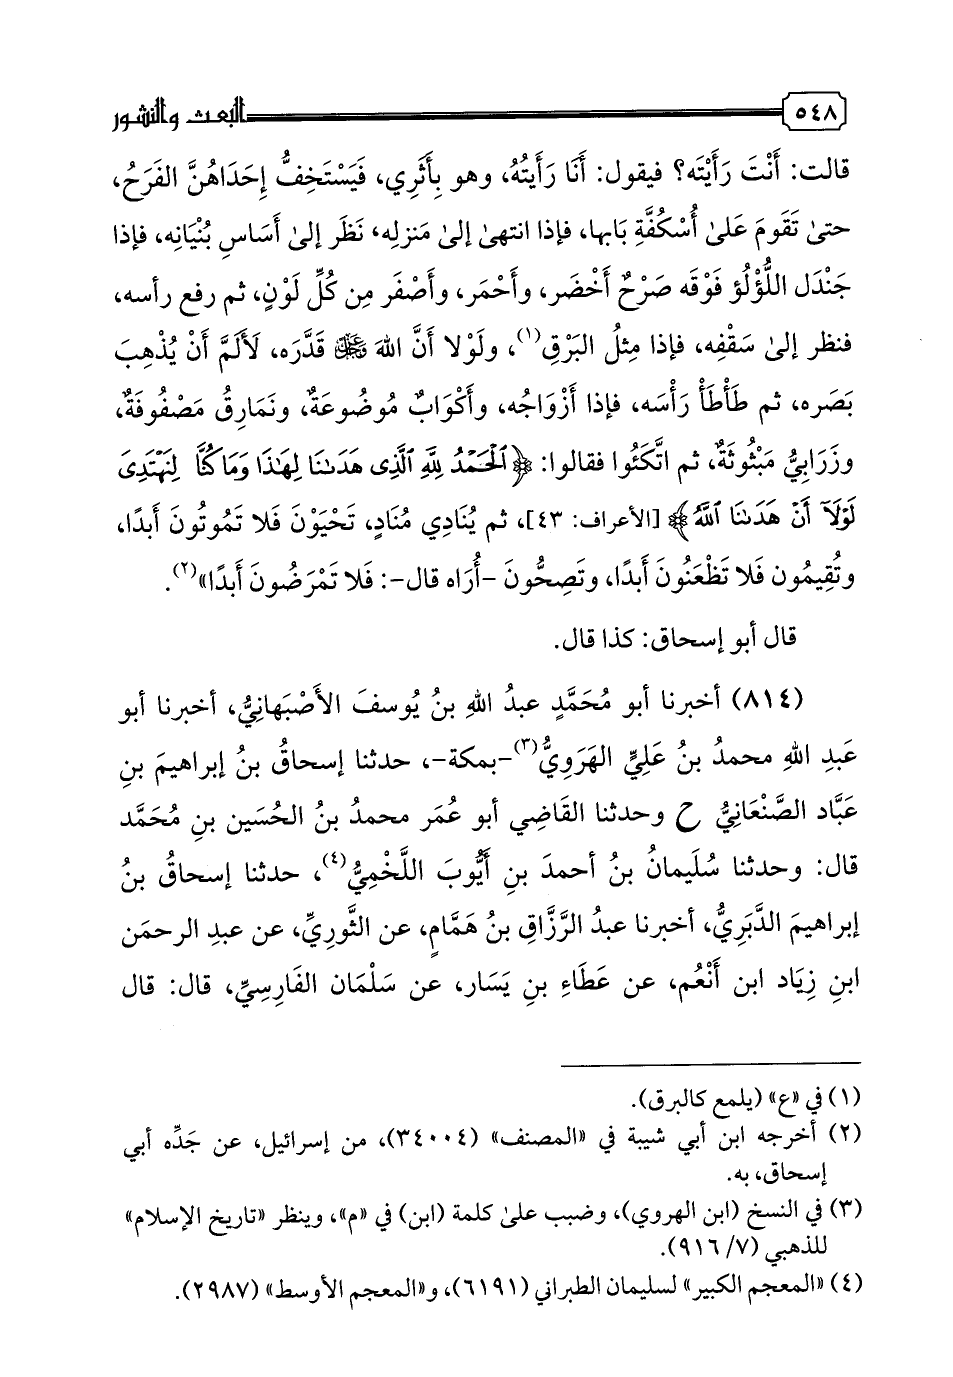 ٥٤٨ البعث والنشور
قالت: أَنْتَ رَأَيْتَه؟ فيقول: أَنَا رَأَيتُهُ، وهو بِأَثَرِي، فَيَسْتَخِفُّ إِحَدَاهُنَّ الفَرَحُ،
حتىٰ تَقَومَ عَلىٰ أُسْكُفَّةِ بَابها، فإذا انتهىٰ إلىٰ مَنزلِه، نَظَر إلىٰ أَسَاسِ بُنْيَانِه، فإذا
جَنْدَل اللُّؤْلُؤ فَوْقَه صَرْحٌ أَخْضَر، وأَحْمَر، وأَصْفَر مِن كُلِّ لَوْنٍ، ثم رفع رأسه،
فنظر إلىٰ سَقْفِه، فإذا مِثلُ البَرْقِ(١)، ولَوْلا أَنَّ اللهَ ﷻ قَدَّرَه، لَأَلَمَّ أَنْ يُذْهِبَ
بَصَره، ثم طَأْطَأْ رَأْسَه، فإذا أَزْوَاجُه، وأَكْوَابٌ مُوضُوعَةٌ، ونَمَارِقُ مَصْفُوفَةٌ،
وزَرَابِيُّ مَبْثُوثَةٌ، ثم اتَّكَئُوا فقالوا: ﴿ٱلْحَمْدُ لِلَّهِ ٱلَّذِى هَدَىٰنَا لِهَٰذَا وَمَا كُنَّا لِنَهْتَدِىَ
لَوْلَآ أَنْ هَدَىٰنَا ٱللَّهُ﴾ [الأعراف: ٤٣]، ثم يُنَادِي مُنَادٍ، تَحْيَوْنَ فَلا تَمُوتُونَ أَبدًا،
وتُقِيمُون فَلا تَظْعَنُونَ أَبدًا، وتَصِحُّونَ -أُرَاه قال-: فَلا تَمْرَضُونَ أَبدًا»(٢).
قال أبو إسحاق: كذا قال.
(٨١٤) أخبرنا أبو مُحَمَّدٍ عبدُ اللهِ بنُ يُوسفَ الأَصْبَهانِيُّ، أخبرنا أبو
عَبدِ اللهِ محمدُ بنُ عَلِيٍّ الهَرَوِيُّ(٣) -بمكة-، حدثنا إسحاقُ بنُ إبراهيمَ بنِ
عَبَّاد الصَّنْعَانِيُّ ح وحدثنا القَاضِي أبو عُمَر محمدُ بنُ الحُسَين بنِ مُحَمَّد
قال: وحدثنا سُلَيمانُ بنُ أحمدَ بنِ أَيُّوبَ اللَّخْمِيُّ(٤)، حدثنا إسحاقُ بنُ
إبراهيمَ الدَّبَرِيُّ، أخبرنا عبدُ الرَّزَّاقِ بنُ هَمَّامٍ، عن الثَّورِيِّ، عن عبدِ الرحمَن
ابنِ زِيَاد ابن أَنْعُم، عن عَطَاءِ بنِ يَسَار، عن سَلْمَان الفَارِسِيِّ، قال: قال
(١) في «ع» (يلمع كالبرق).
(٢) أخرجه ابن أبي شيبة في «المصنف» (٣٤٠٠٤)، من إسرائيل، عن جَدِّه أبي
إسحاق، به.
(٣) في النسخ (ابن الهروي)، وضبب علىٰ كلمة (ابن) في «م»، وينظر «تاريخ الإسلام»
للذهبي (٧/ ٩١٦).
(٤) «المعجم الكبير» لسليمان الطبراني (٦١٩١)، و«المعجم الأوسط» (٢٩٨٧).